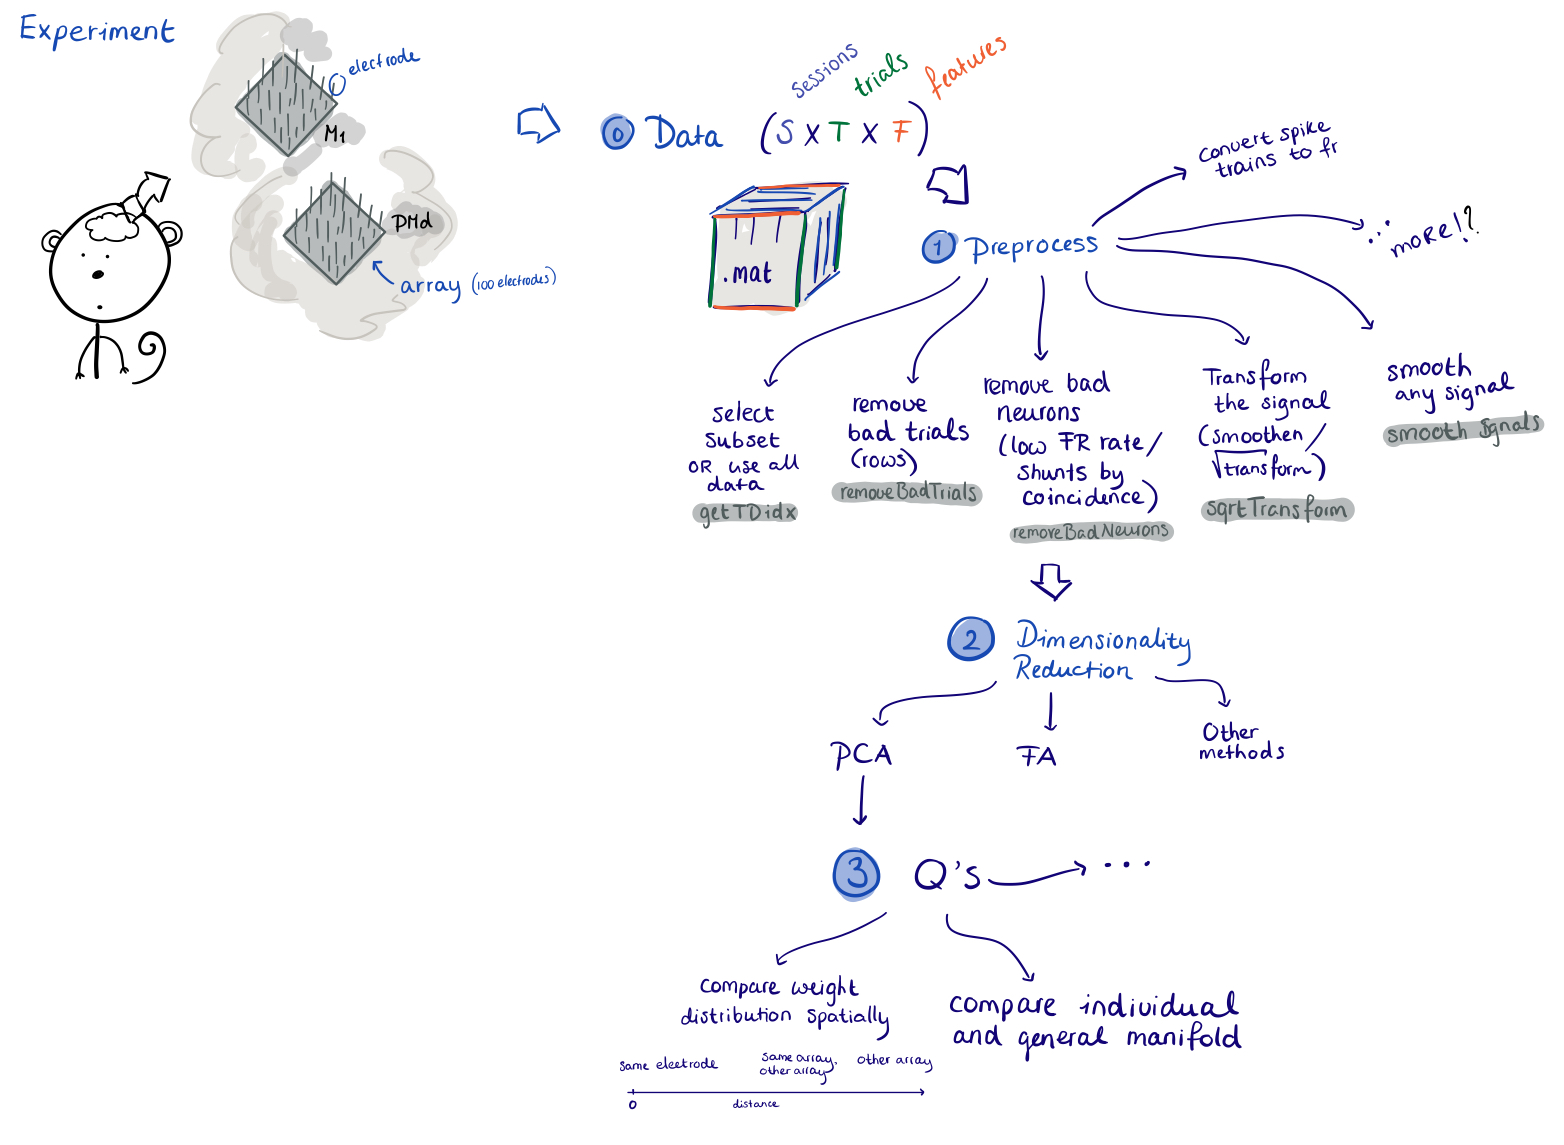 Experiment
electrode
M1
PMd
array (100 electrodes)
0 Data (S x T x F)
sessions
trials
features
.mat
1 Preprocess
convert spike
trains to fr
... more!?
select
subset
OR use all
data
getTDidx
remove
bad trials
(rows)
removeBadTrials
remove bad
neurons
(low FR rate/
shunts by
coincidence)
removeBadNeurons
Transform
the signal
(smoothen/
√transform)
sqrtTransform
smooth
any signal
smooth Signals
2 Dimensionality
Reduction
PCA
FA
Other
methods
3 Q's ...
compare weight
distribution spatially
same electrode
same array,
other array
other array
0
distance
compare individual
and general manifold